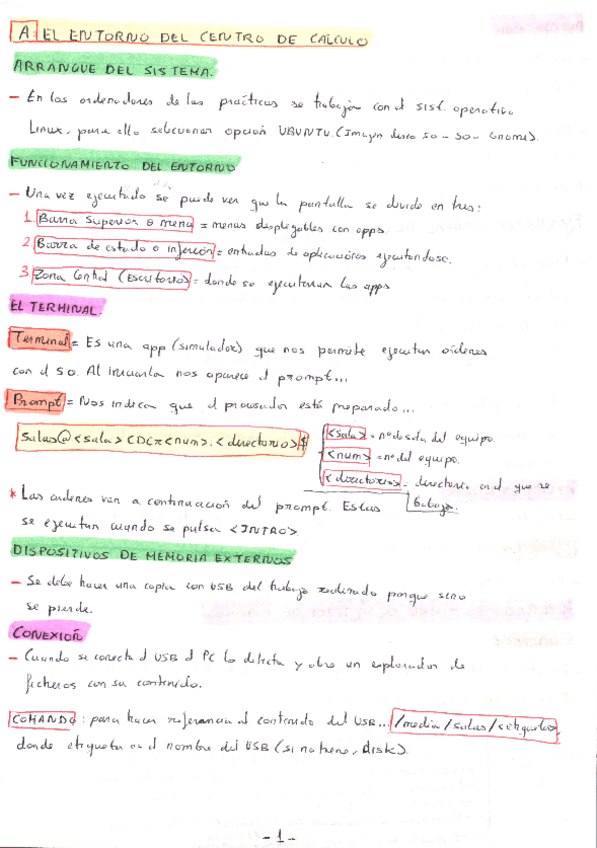 A: EL ENTORNO DEL CENTRO DE CALCULO
ARRANQUE DEL SISTEMA.
- En los ordenadores de las prácticas se trabaja con el sist. operativo
Linux, para ello seleccionar opción UBUNTU. (Imagen disco 50 - 50 - Gnome).
FUNCIONAMIENTO DEL ENTORNO
- Una vez ejecutado se puede ver que la pantalla se divide en tres:
1 Barra superior o menú = menus desplegables con apps.
2 Barra de estado o inferior = entradas de aplicaciones ejecutandose.
3 Zona Central (Escritorio) = donde se ejecutarán las apps
EL TERMINAL.
Terminal = Es una app (simulador) que nos permite ejecutar ordenes
con el SO. Al iniciarla nos aparece el prompt...
Prompt = Nos indica que el procesador está preparado...
salas@<sala>CDC<num>:<directorio>$
<sala> = nº de sala del equipo.
<num> = nº del equipo.
<directorio> = directorio en el que se
trabaja.
* Las ordenes van a continuación del prompt. Estas
se ejecutan cuando se pulsa <INTRO>.
DISPOSITIVOS DE MEMORIA EXTERNOS
- Se debe hacer una copia con USB del trabajo realizado porque sino
se pierde.
CONEXIÓN
- Cuando se conecta el USB el PC lo detecta y abre un explorador de
ficheros con su contenido.
COMANDO: para hacer referencia al contenido del USB... /media/salas/<etiqueta>,
donde etiqueta es el nombre del USB (si no tiene, disk).
- 1 -